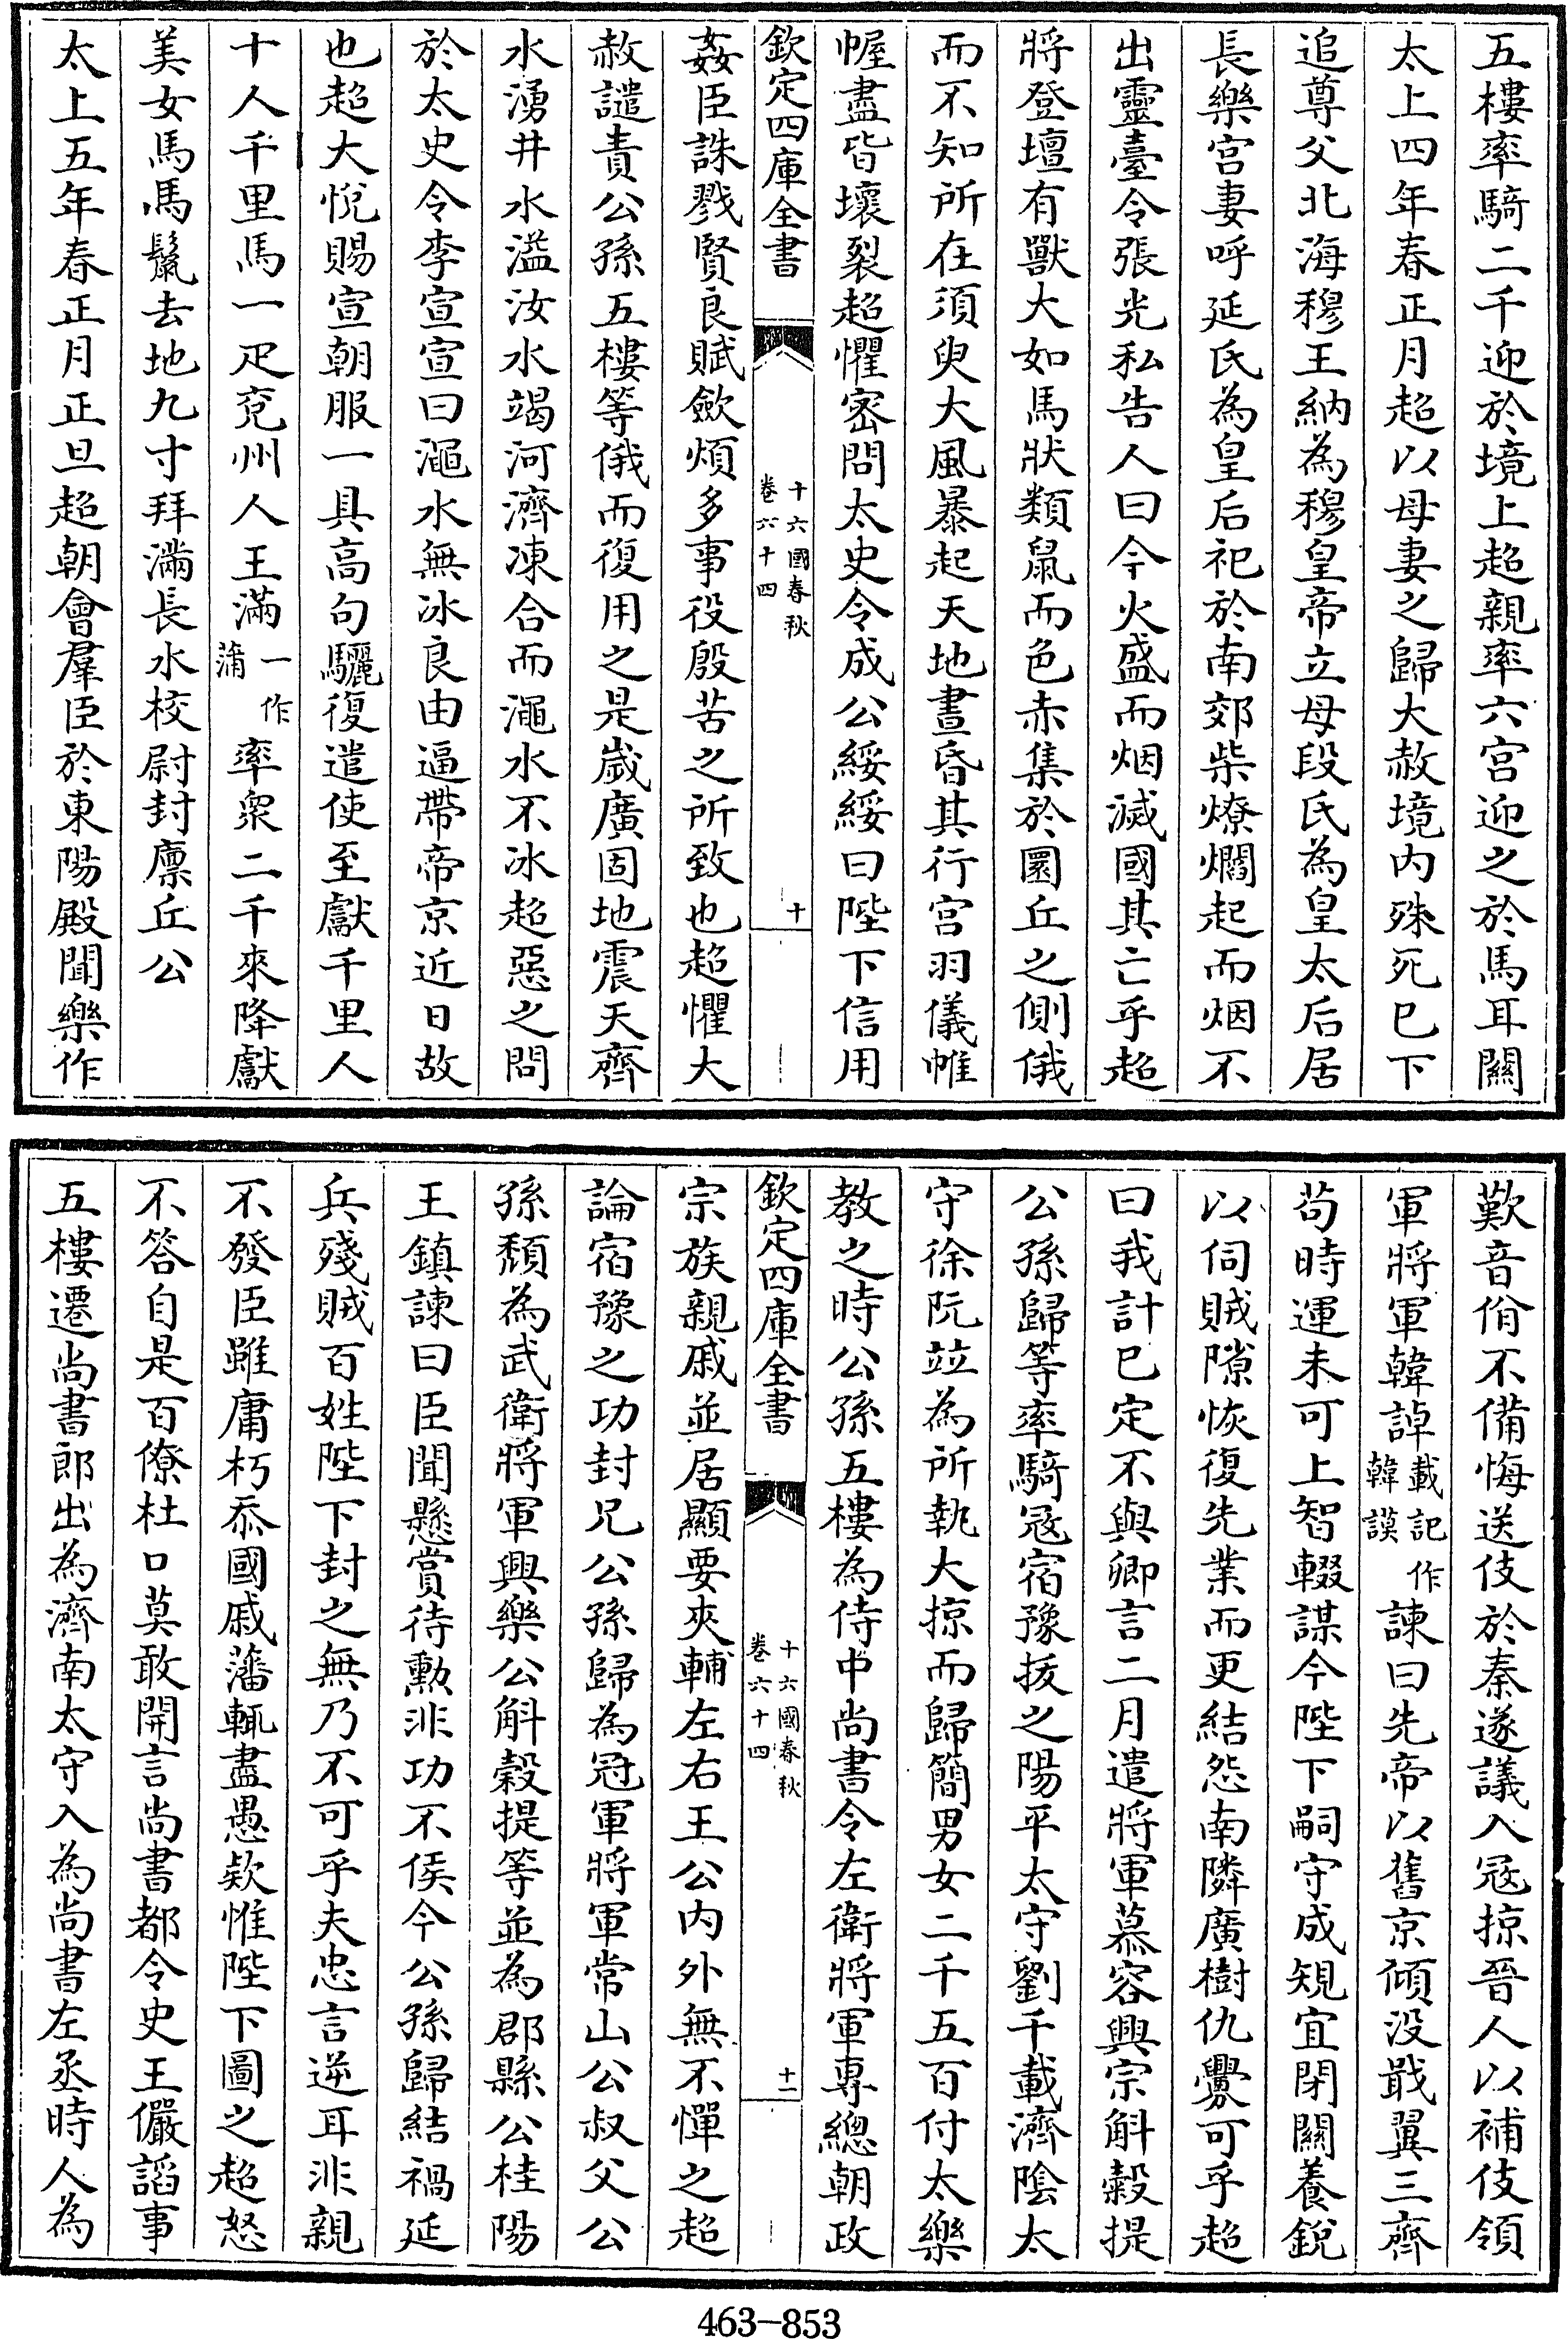 五樓率騎二千迎於境上超親率六宮迎之於馬耳關
太上四年春正月超以母妻之歸大赦境內殊死已下
追尊父北海穆王納為穆皇帝立母段氏為皇太后居
長樂宮妻呼延氏為皇后祀於南郊柴燎爓起而烟不
出靈臺令張光私告人曰今火盛而烟滅國其亡乎超
將登壇有獸大如馬狀類鼠而色赤集於圜丘之側俄
而不知所在須臾大風暴起天地晝昏其行宮羽儀帷
幄盡皆壞裂超懼密問太史令成公綏綏曰陛下信用
欽定四庫全書
十六國春秋
卷六十四
十
姦臣誅戮賢良賦斂煩多事役殷苦之所致也超懼大
赦譴責公孫五樓等俄而復用之是歲廣固地震天齊
水湧井水溢汝水竭河濟凍合而澠水不冰超惡之問
於太史令李宣宣曰澠水無冰良由逼帶帝京近日故
也超大悅賜宣朝服一具高句驪復遣使至獻千里人
十人千里馬一疋兗州人王滿一作蒲率衆二千來降獻
美女馬馬鬣去地九寸拜滿長水校尉封廪丘公
太上五年春正月正旦超朝會羣臣於東陽殿聞樂作
歎音佾不備悔送伎於秦遂議入冦掠晉人以補伎領
軍將軍韓𧨳載記作韓謨諫曰先帝以舊京傾没戢翼三齊
苟時運未可上智輟謀今陛下嗣守成規宜閉關養銳
以伺賊隙恢復先業而更結怨南隣廣樹仇釁可乎超
曰我計已定不與卿言二月遣將軍慕容興宗斛穀提
公孫歸等率騎冦宿豫拔之陽平太守劉千載濟陰太
守徐阮竝為所執大掠而歸簡男女二千五百付太樂
教之時公孫五樓為侍中尚書令左衛將軍專總朝政
欽定四庫全書
十六國春秋
卷六十四
十一
宗族親戚並居顯要夾輔左右王公內外無不憚之超
論宿豫之功封兄公孫歸為冠軍將軍常山公叔父公
孫頹為武衛將軍興樂公斛穀提等並為郡縣公桂陽
王鎮諫曰臣聞懸賞待勲非功不侯今公孫歸結禍延
兵殘賊百姓陛下封之無乃不可乎夫忠言逆耳非親
不發臣雖庸朽忝國戚藩輒盡愚欵惟陛下圖之超怒
不答自是百僚杜口莫敢開言尚書都令史王儼諂事
五樓遷尚書郎出為濟南太守入為尚書左丞時人為
463-853